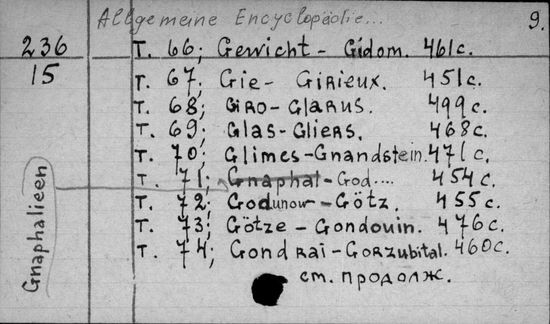 Allgemeine Encyclopädie...
9.
236
15
T. 66; Gewicht - Gidom. 461c.
T. 67; Gie - Girieux. 451c.
T. 68; Giro-Glarus. 499c.
T. 69; Glas-Gliers. 468c.
T. 70; Glimes-Gnandstein. 471c.
T. 71; Gnaphal-God.... 454c.
T. 72; Godunow - Götz. 455c.
T. 73; Götze - Gondouin. 476c.
T. 74; Gondrai-Gorzubital. 460c.
см. продолж.
Gnaphalieen